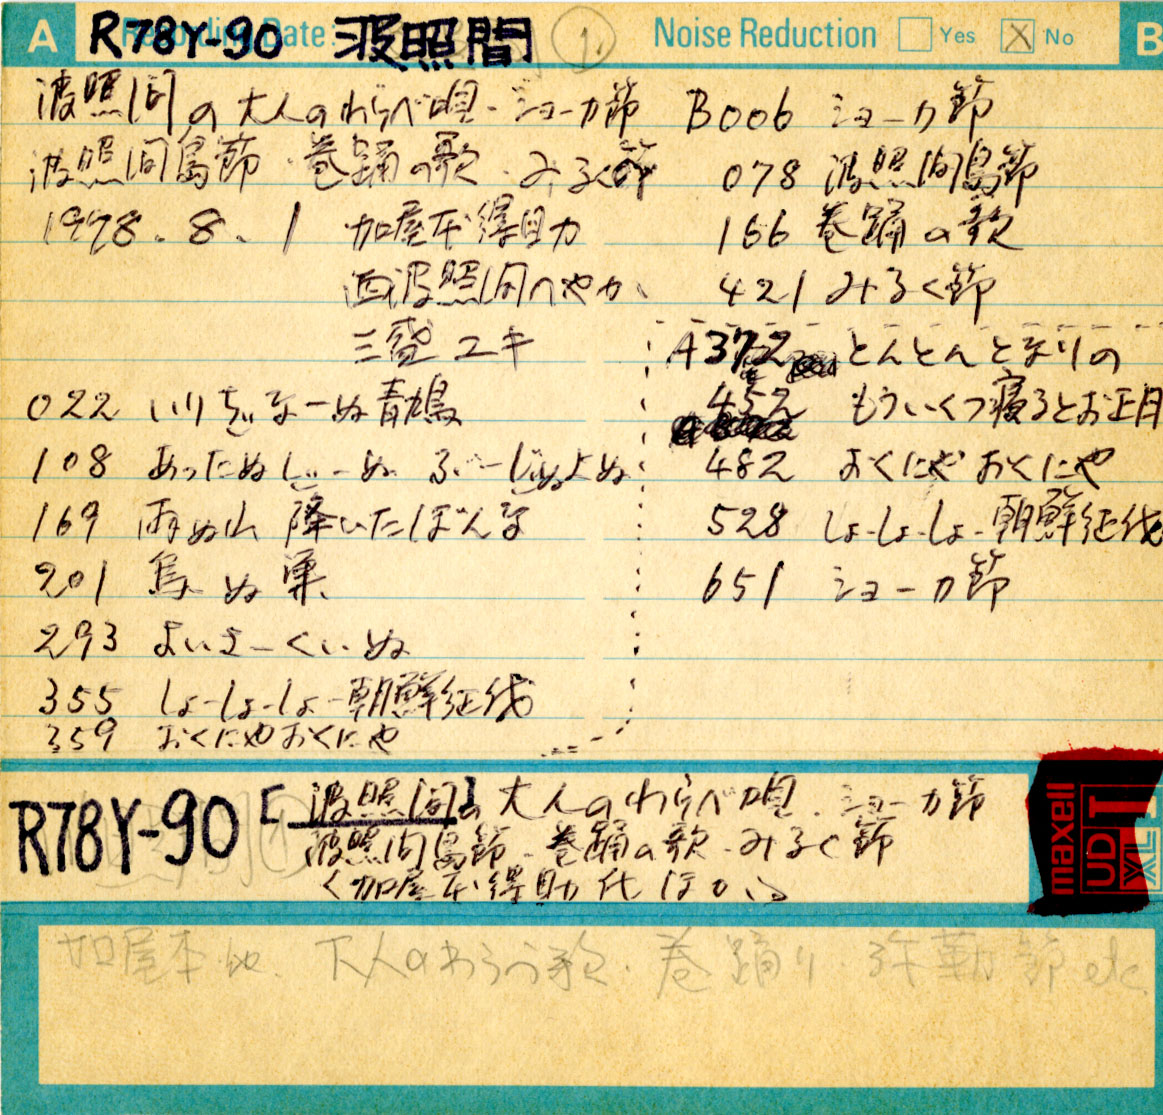 A R78Y-90 波照間 ① Noise Reduction Yes No B
Recording Date:
波照間の大人のわらべ唄・ショーカ節
波照間島節・巻踊の歌・みるく節
1978.8.1 加屋本得目力
西波照間へやか
三盛ユキ
022 いりちぢなーぬ青鳩
108 あったぬじーぬ ぶーじぬよぬ
169 雨ぬ山 降いたぼんな
201 鳥ぬ巣
293 よいさーくいぬ
355 しょーしょーしょー朝鮮征伐
359 おくにやおくにや
B006 ショーカ節
078 波照間島節
166 巻踊の歌
421 みるく節
A372 とんとんとなりの
452 もういくつ寝るとお正月
482 おくにやおくにや
528 しょーしょーしょー朝鮮征伐
651 ショーカ節
R78Y-90 [波照間] 大人のわらべ唄・ショーカ節
波照間島節・巻踊の歌・みるく節
〈加屋本得助 ほか〉
maxell
UDI
XL
加屋本他、大人のわらべ歌・巻踊り・弥勒節 etc